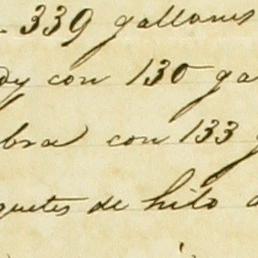 339 gallones
dy con 130 ga
bra con 133 g
quetes de hilo d